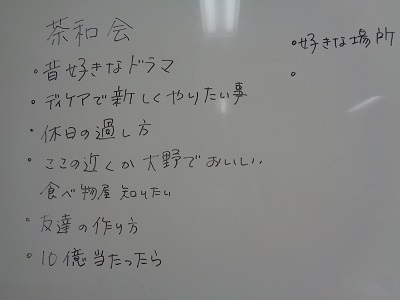 茶和会
・昔好きなドラマ
・ディケアで新しくやりたい事
・休日の過し方
・ここの近くか大野でおいしい
食べ物屋知りたい
・友達の作り方
・10億当たったら
・好きな場所
・